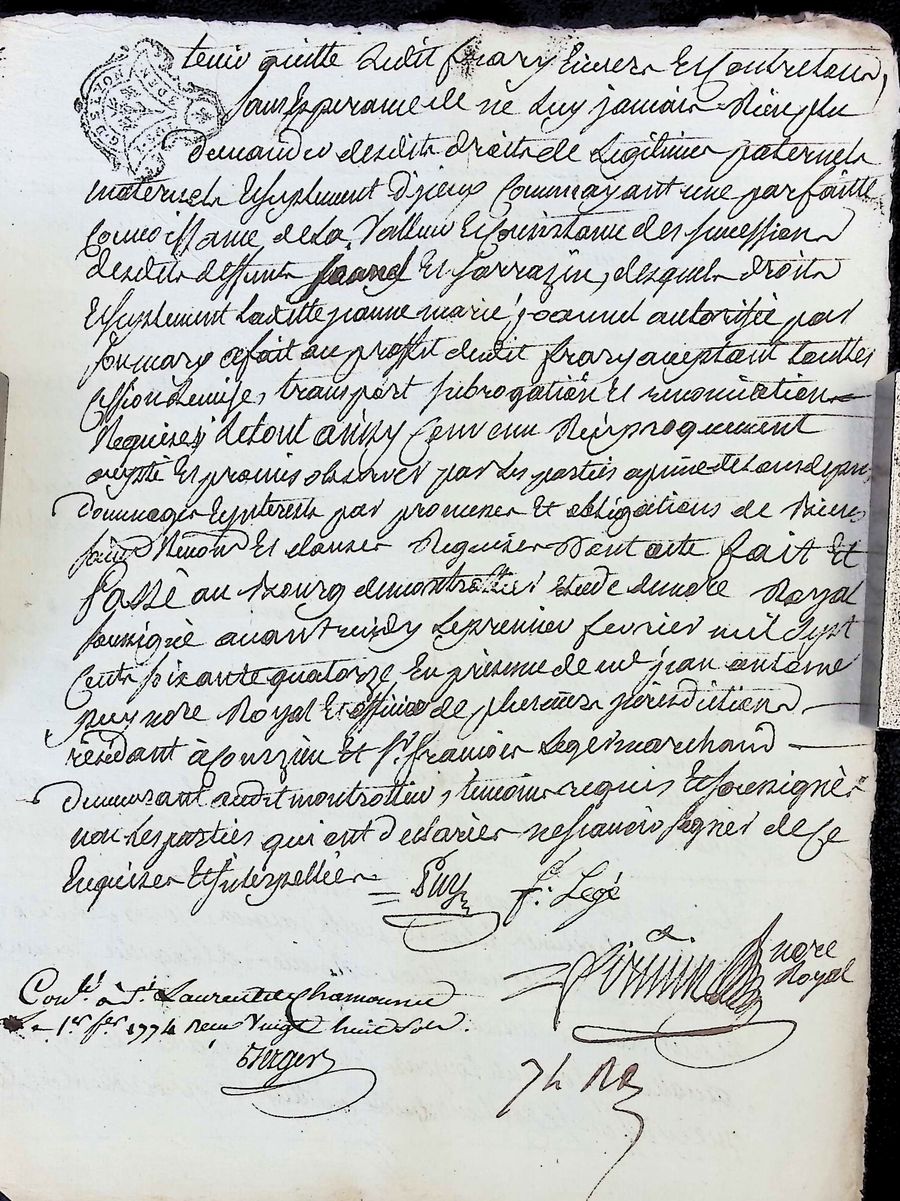 tenir quitte Ledit frary Envers Et Contre tous
sans Esperance de ne Luy jamais Rien plus
demander desdits droits de Legitimes paternels
maternels Et suplement d'jieux Connoyant une parfaitte
Connoissance de La Valleur Et Consistance des successions
desdits deffunts joanel Et sarrazin, desquels droits
Et suplement Laditte jeanne marie joannel autorisée par
son mary a fait au proffit dudit frary aceptant touttes
Cession Remise, transport subrogation Et renonciation
Requises, Le tout ainsy Convenu Reciproquement
acepté Et promis observer par Les parties a peine de tous depens
dommages Et jnterests par promesses Et obligations de Biens
Renons Et clauses Requises Dont acte fait Et
Passé au Bourg de montrottier Etude du nore Royal
soussigné avant midy Le premier fevrier mil Sept
Cents soixante quatorze En présence de me jean antoine
puy nore Royal Et officier de plusieurs jurisdictions
résidant à Courzieu Et sr. françois Leger marchand
demeurant audit montrottier, temoins requis Et soussignés
non Les parties qui ont declarées ne sçavoir signer de Ce
Enquises Et jnterpellées
Puy f. Legé
nore
Royal
Conlé. à St. Laurent de Chamousset
Le 1er. fer. 1774 Reçu Vingt huit sols.
Berger